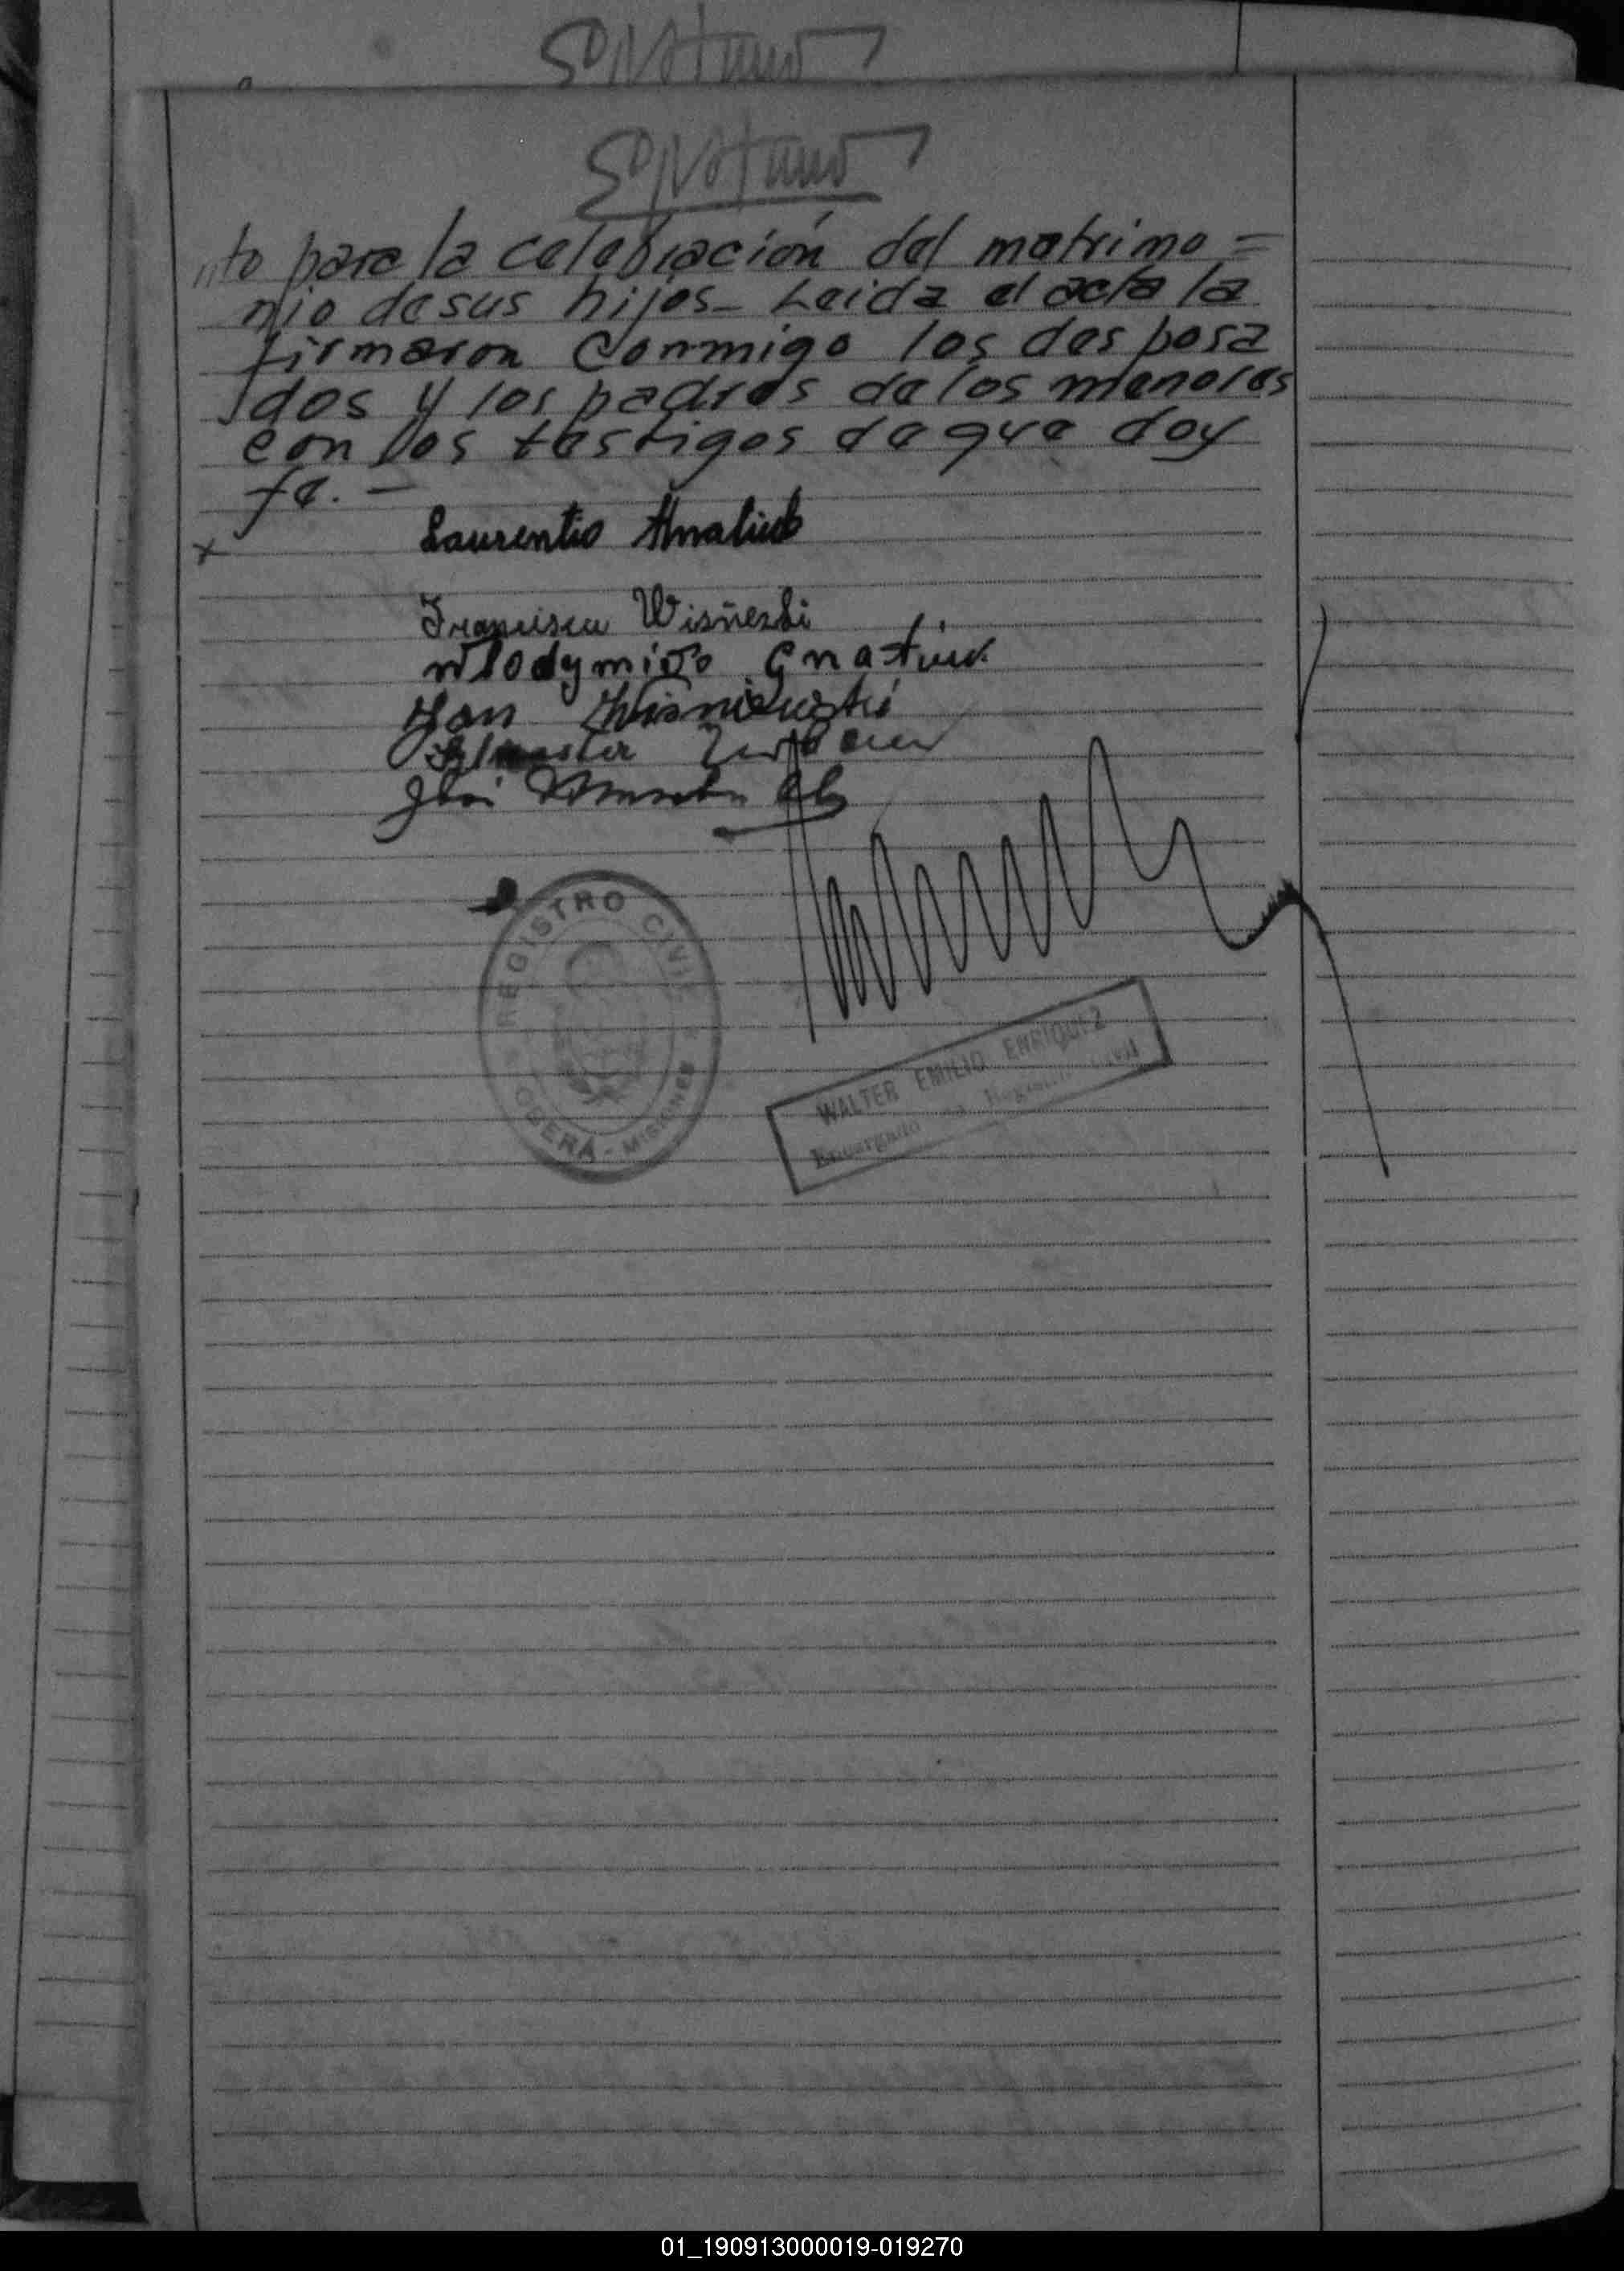 nto para la celebración del matrimo=
nio de sus hijos_ Leida el acta la
firmaron conmigo los desposa
dos y los padres de los menores
con los testigos de que doy
fé. —
x
Laurentio Hnatiuk
Francisca Wisñeski
Wlodymiro Gnatiuk
Jan Wisniewski
José
REGISTRO CIVIL
OBERÁ - MISIONES
WALTER EMILIO ENRIQUEZ
Encargado Registro Civil
01_190913000019-019270